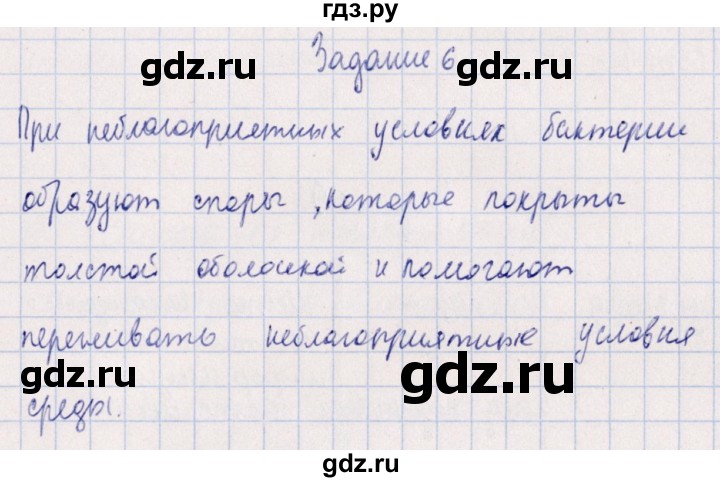 гдз.ру
Задание 6
gdz.ru gdz.ru
При неблагоприятных условиях бактерии
образуют споры, которые покрыты
толстой оболочкой и помогают
переживать неблагоприятные условия
gdz.ru gdz.ru
среды.
gdz.ru